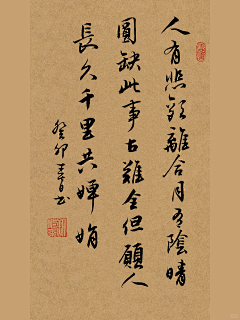 人有悲歡離合月有陰晴
圓缺此事古難全但願人
長久千里共嬋娟
癸卯
書